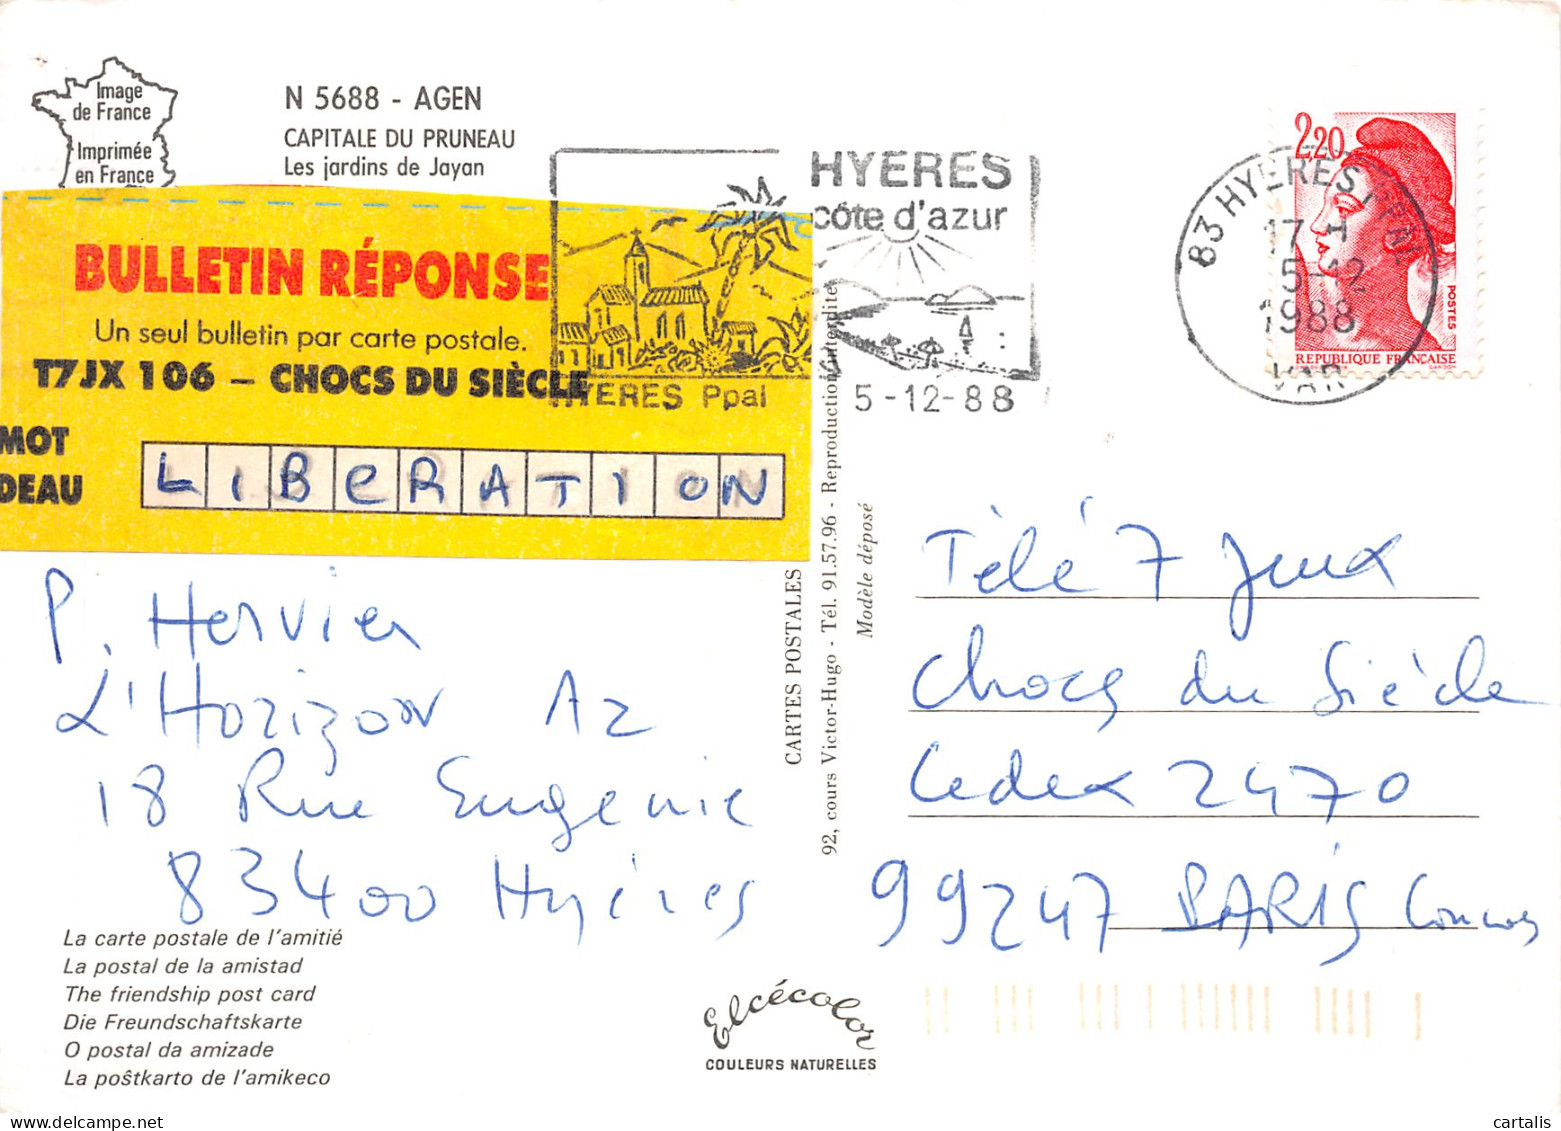 Image
de France
Imprimée
en France
N 5688 - AGEN
CAPITALE DU PRUNEAU
Les jardins de Jayan
BULLETIN RÉPONSE
Un seul bulletin par carte postale.
T7JX 106 – CHOCS DU SIÈCLE
MOT
DEAU
LIBERATION
HYERES
côte d'azur
HYERES Ppal
5-12-88
83 HYERES PPAL
17 H
5-12
1988
VAR
2,20
POSTES
REPUBLIQUE FRANÇAISE
P. Hervier
L'Horizon A2
18 Rue Eugénie
83400 Hyères
CARTES POSTALES
92, cours Victor-Hugo - Tél. 91.57.96 - Reproduction interdite
Modèle déposé
Télé 7 Jeux
Chocs du Siècle
Cedex 2470
99247 PARIS Concours
La carte postale de l'amitié
La postal de la amistad
The friendship post card
Die Freundschaftskarte
O postal da amizade
La poŝtkarto de l'amikeco
Elcécolor
COULEURS NATURELLES
cartalis